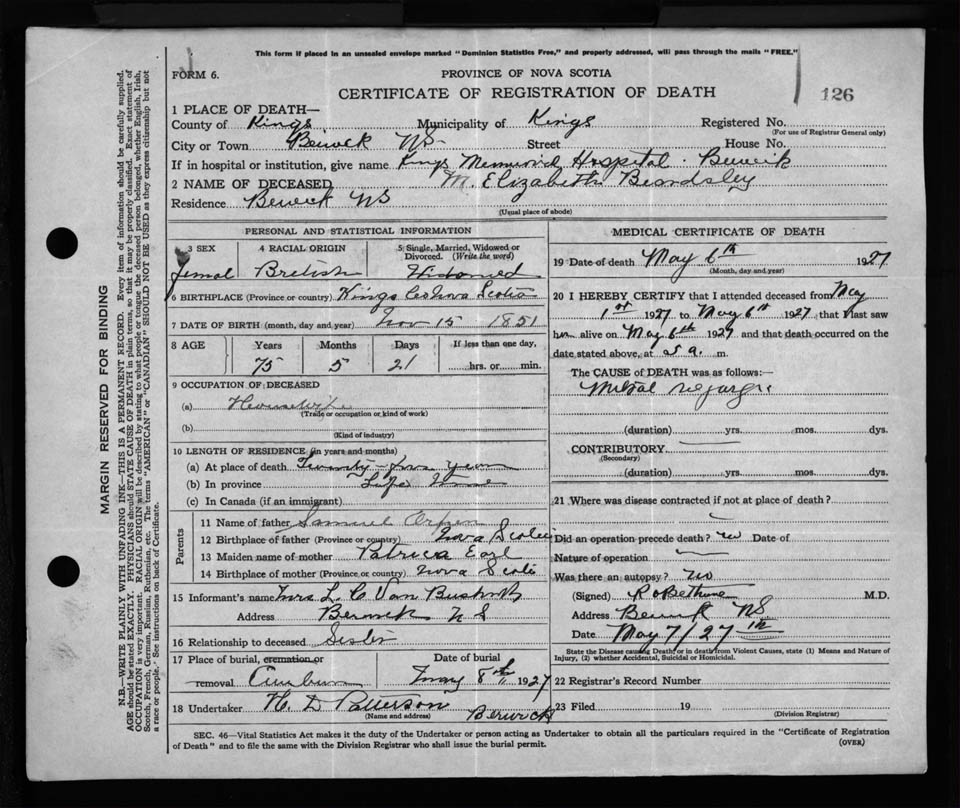 This form if placed in an unsealed envelope marked "Dominion Statistics Free," and properly addressed, will pass through the mails "FREE."
FORM 6.
PROVINCE OF NOVA SCOTIA
CERTIFICATE OF REGISTRATION OF DEATH
126
1 PLACE OF DEATH—
County of Kings Municipality of Kings Registered No.
(For use of Registrar General only)
City or Town Berwick NS Street House No.
If in hospital or institution, give name Kings Memorial Hospital. Berwick
2 NAME OF DECEASED M. Elizabeth Beardsley
Residence Berwick NS
(Usual place of abode)
PERSONAL AND STATISTICAL INFORMATION
3 SEX 4 RACIAL ORIGIN 5 Single, Married, Widowed or Divorced. (Write the word)
Femal British Widowed
6 BIRTHPLACE (Province or country) Kings Co Nova Scotia
7 DATE OF BIRTH (month, day and year) Nov 15 1851
8 AGE Years Months Days If less than one day,
75 5 21 hrs. or min.
9 OCCUPATION OF DECEASED
(a) Housewife
(Trade or occupation or kind of work)
(b)
(Kind of industry)
10 LENGTH OF RESIDENCE (in years and months)
(a) At place of death Twenty
(b) In province Life time
(c) In Canada (if an immigrant)
Parents
11 Name of father Samuel Orpen
12 Birthplace of father (Province or country) Nova Scotia
13 Maiden name of mother
14 Birthplace of mother (Province or country) Nova Scotia
15 Informant's name Mrs L. C Van Buskirk
Address Berwick N S
16 Relationship to deceased Sister
17 Place of burial, cremation or removal Date of burial
May 8th 1927
18 Undertaker H. D Patterson Berwick
(Name and address)
MEDICAL CERTIFICATE OF DEATH
19 Date of death May 6th 1927
(Month, day and year)
20 I HEREBY CERTIFY that I attended deceased from May
1st 1927 to May 6th 1927 that I last saw
her alive on May 6th 1927 and that death occurred on
date stated above, at a. m.
The CAUSE of DEATH was as follows:—
(duration) yrs. mos. dys.
CONTRIBUTORY
(Secondary)
(duration) yrs. mos. dys.
21 Where was disease contracted if not at place of death?
Did an operation precede death? no Date of
Nature of operation
Was there an autopsy? no
(Signed) Bethune M.D.
Address Berwick NS
Date May 7/27
State the Disease causing Death, or in death from Violent Causes, state (1) Means and Nature of
Injury, (2) whether Accidental, Suicidal or Homicidal.
22 Registrar's Record Number
23 Filed 19
(Division Registrar)
SEC. 46—Vital Statistics Act makes it the duty of the Undertaker or person acting as Undertaker to obtain all the particulars required in the "Certificate of Registration
of Death" and to file the same with the Division Registrar who shall issue the burial permit.
(OVER)
MARGIN RESERVED FOR BINDING
N.B.—WRITE PLAINLY WITH UNFADING INK—THIS IS A PERMANENT RECORD. Every item of information should be carefully supplied.
AGE should be stated EXACTLY. PHYSICIANS should STATE CAUSE OF DEATH in plain terms, so that it may be properly classified. Exact statement of
OCCUPATION is very important. RACIAL ORIGIN will be described by stating to what people or tongue the deceased person belonged, whether English, Irish,
Scotch, French, German, Russian, Ruthenian, etc. The terms "AMERICAN" or "CANADIAN" SHOULD NOT BE USED as they express citizenship but not
a race or people. See instructions on back of Certificate.